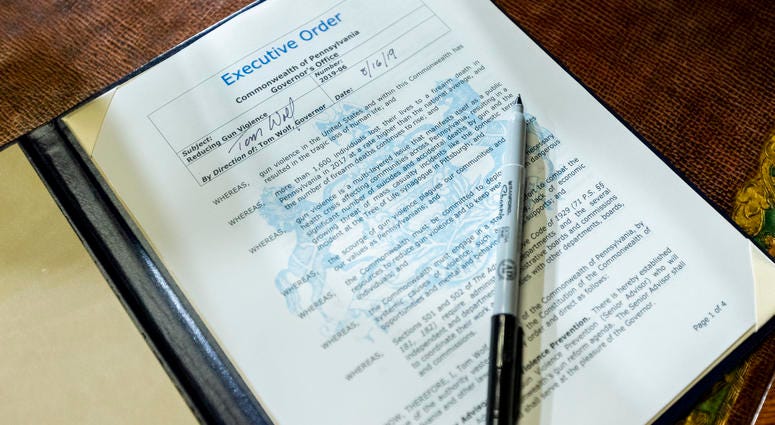 Executive Order
Commonwealth of Pennsylvania
Governor's Office
Subject:
Reducing Gun Violence
Number:
2019-06
By Direction of: Tom Wolf, Governor
Tom Wolf
Date:
8/16/19
WHEREAS, gun violence in the United States and within this Commonwealth has
resulted in the tragic loss of human life; and
WHEREAS, more than 1,600 individuals lost their lives to a firearm death in
Pennsylvania in 2017 at a rate higher than the national average, and
the number of firearm deaths continues to rise; and
WHEREAS, gun violence is a multi-layered issue that manifests itself as a public
health crisis affecting communities across Pennsylvania, resulting in a
significant number of suicides and accidental deaths by gun and the
growing threat of mass casualty incidents like the domestic
incident at the Tree of Life Synagogue in Pittsburgh;
WHEREAS, the scourge of gun violence plagues our communities and
our values as Pennsylvanians; and
WHEREAS, the Commonwealth must be committed to
resources to reduce gun violence and to keep
individuals; and
WHEREAS, the Commonwealth must engage in a
effort to combat the
systemic causes of violence, such
lack of economic
opportunities and mental and
supports; and
WHEREAS, Sections 501 and 502 of the
Code of 1929 (71 P.S. §§
181, 182) require
departments and the several
independent
boards and commissions
to coordinate their work
with other departments, boards,
and commissions.
NOW, THEREFORE, I, Tom Wolf,
of the Commonwealth of Pennsylvania, by
of the authority vested
the Constitution of the Commonwealth of
and other laws
order and direct as follows:
Violence Prevention. There is hereby established
Violence Prevention (Senior Advisor) who will
gun reform agenda. The Senior Advisor shall
serve at the pleasure of the Governor.
Page 1 of 4